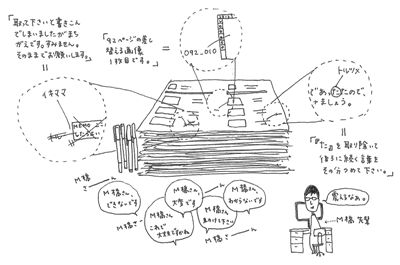 「取って下さいと書きこん
でしまいましたがまち
がえです。すみません。
そのままでお願いします。」
イキママ
「92ページの差し
替える画像
1枚目です。」
092_010
トルツメ
であったので
ましょう。
「『た』を取り除いて
後ろに続く言葉を
その分つめて下さい。」
M橋
さーん
M橋さん、
できないです
M橋さん
さーん
M橋さん、
大変です
M橋さん、
これで
大丈夫ですかね
M橋さん、
M橋さん、
わからないです
M橋
さーん
震えるなぁ。
M橋先輩